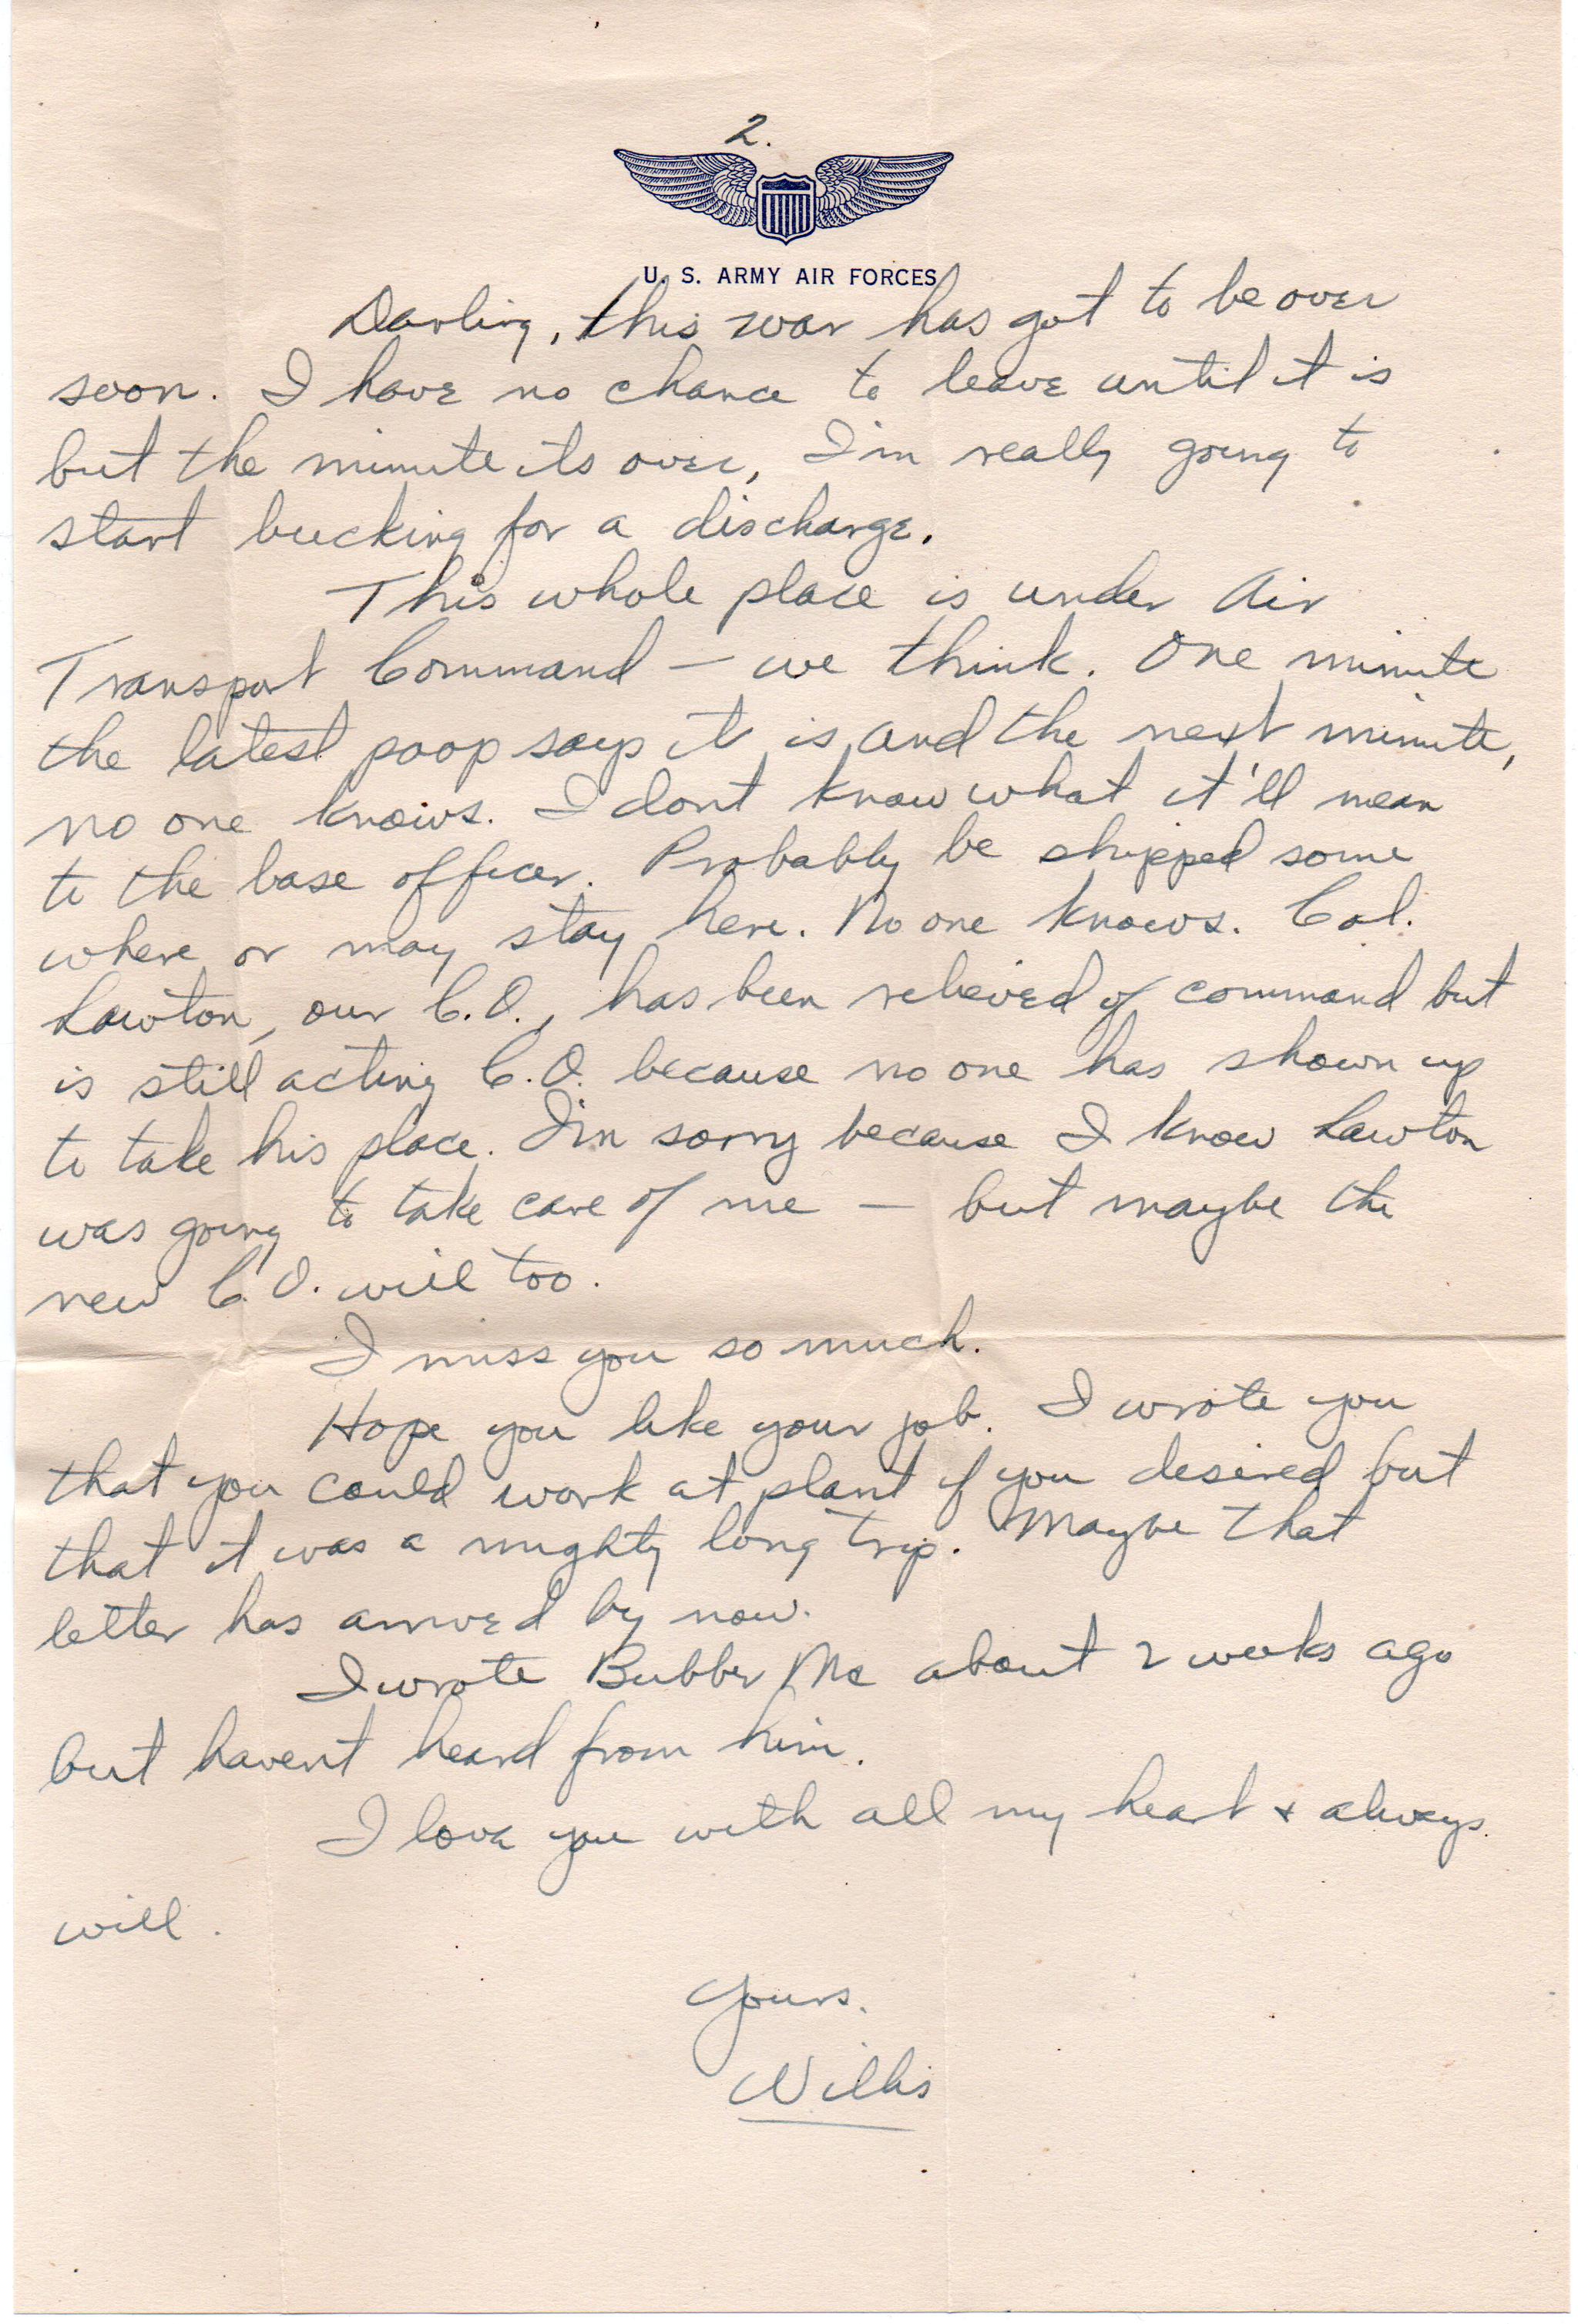 2.
U. S. ARMY AIR FORCES
Darling, this war has got to be over
soon. I have no chance to leave until it is
but the minute its over, I'm really going to
start bucking for a discharge.
This whole place is under Air
Transport Command — we think. One minute
the latest poop says it is and the next minute,
no one knows. I dont know what it'll mean
to the base officer. Probably be shipped some
where or may stay here. No one knows. Col.
Lawton, our C.O., has been relieved of command but
is still acting C.O. because no one has shown up
to take his place. I'm sorry because I know Lawton
was going to take care of me — but maybe the
new C.O. will too.
I miss you so much.
Hope you like your job. I wrote you
that you could work at plant if you desired but
that it was a mighty long trip. Maybe that
letter has arrived by now.
I wrote Bubber Mc about 2 weeks ago
but havent heard from him.
I love you with all my heart + always
will.
Yours.
Willis